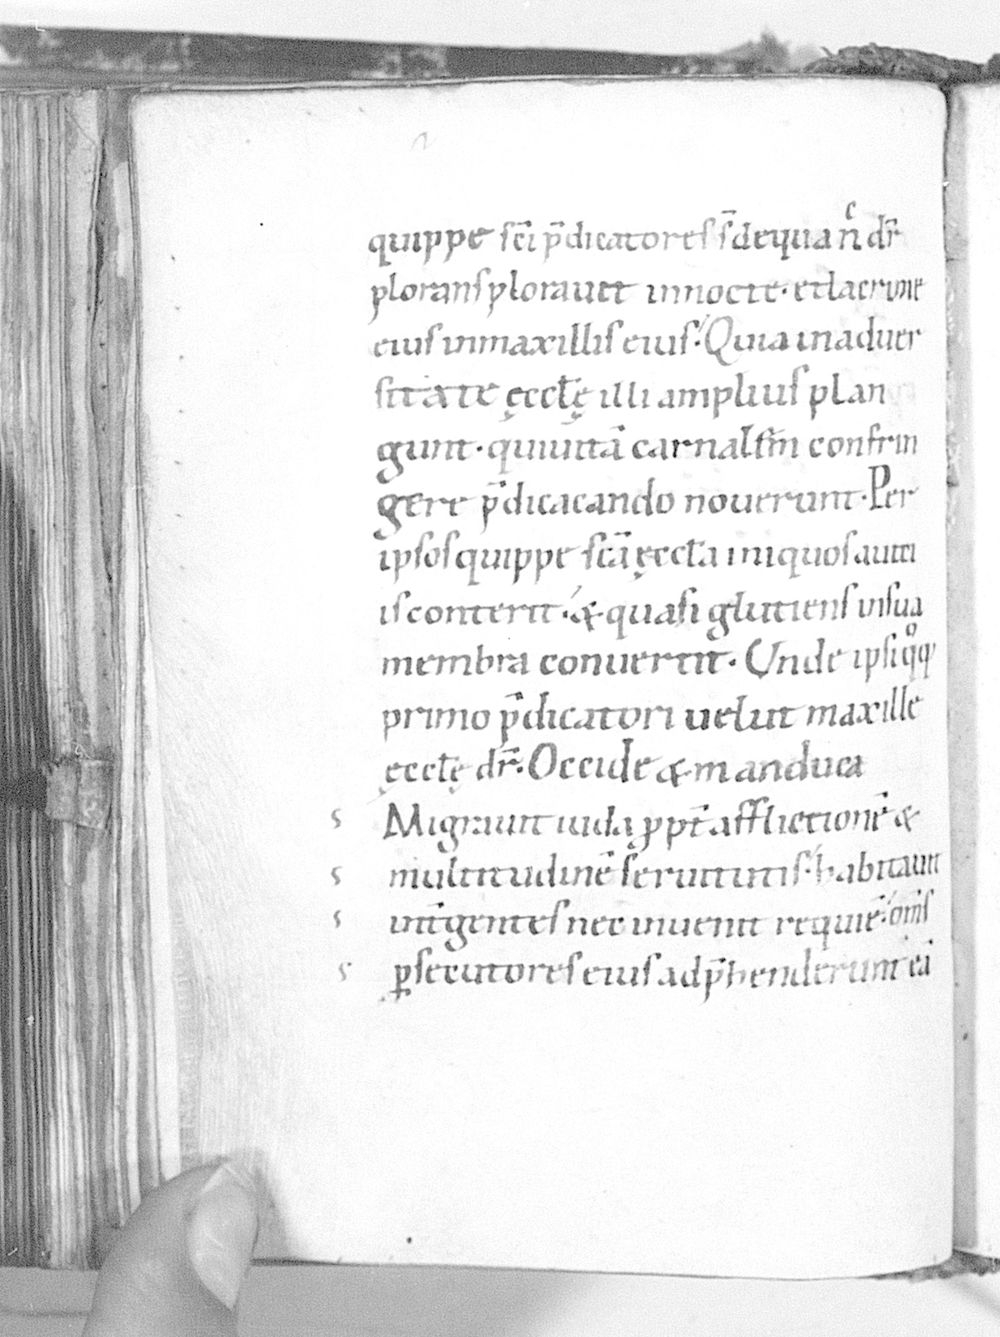 quippe sc̄i p̄dicatores s̄ de qua nc̄ dr̄
plorans plorauit in nocte · et lacrime
eius in maxillis eius · Quia in aduer
sitate ęcclę̄ illi amplius plan
gunt · qui uitā carnaliū confrin
gere p̄dicacando nouerunt · Per
ipsos quippe sc̄ā ęccl̄a iniquos a uiti
is conterit · & quasi glutiens in sua
membra conuertit · Unde ipsi qͦq;
primo p̄dicatori uelut maxille
ęccl̄ę dr̄ · Occide & manduca
s Migrauit iuda ꝓpt̄ afflictionē &
s multitudinē seruitutis · habitauit
s int̄ gentes nec inuenit requiē · om̄s
s ꝑsecutores eius adp̄henderunt eā